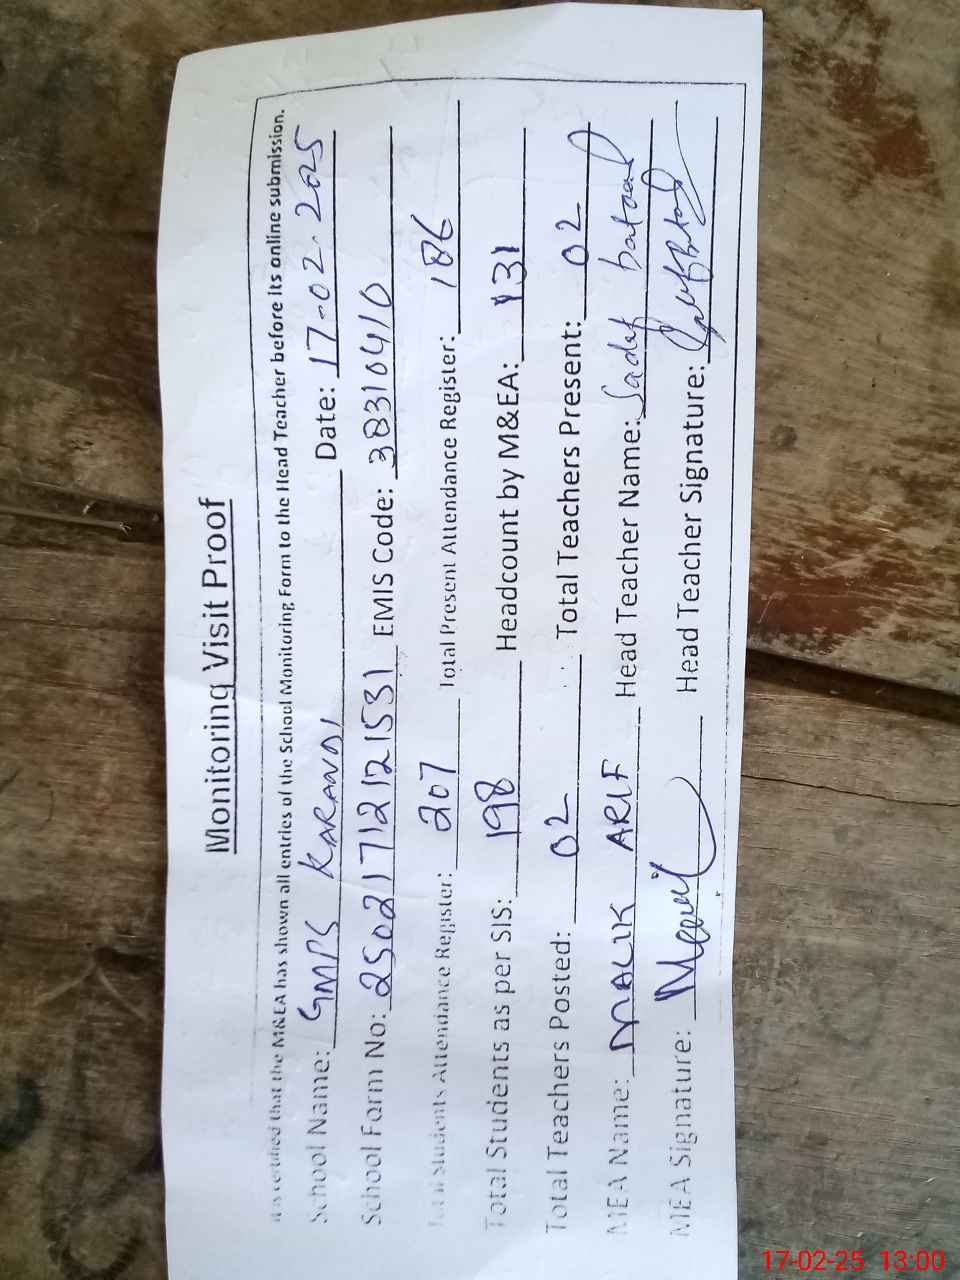 Monitoring Visit Proof
It is certified that the M&EA has shown all entries of the School Monitoring Form to the Head Teacher before its online submission.
School Name: GMPS KARANDI Date: 17-02-2025
School Form No: 25021712121531 EMIS Code: 38310410
Total Students Attendance Register: 207 Total Present Attendance Register: 186
Total Students as per SIS: 198 Headcount by M&EA: 131
Total Teachers Posted: 02 Total Teachers Present: 02
MEA Name: MALIK ARIF Head Teacher Name: Sadef batool
MEA Signature: Head Teacher Signature:
17-02-25 13:00